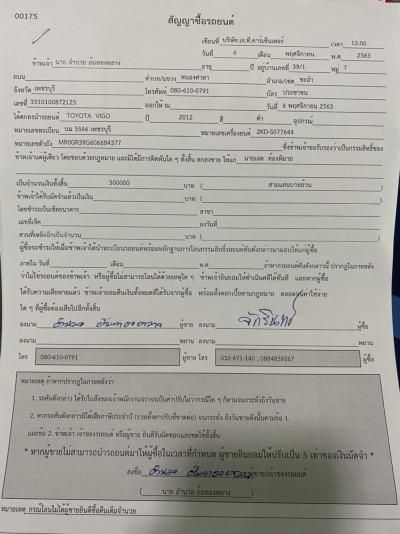 00175
สัญญาซื้อรถยนต์
เขียนที่ บริษัท เจ.ที.คาร์เซ็นเตอร์ เวลา 12.00
วันที่ 6 เดือน พฤศจิกายน พ.ศ. 2563
ข้าพเจ้า นาย อำนวย อิ่มทองหลาง อายุ ปี อยู่บ้านเลขที่ 39/1 หมู่ 7
ถนน ตำบล/แขวง หนองศาลา อำเภอ/เขต ชะอำ
จังหวัด เพชรบุรี โทรศัพท์ 080-610-0791 บัตร ประชาชน
เลขที่ 3310100872125 ออกให้ ณ วันที่ 6 พฤศจิกายน 2563
ได้ตกลงขายรถยนต์ TOYOTA VIGO ปี 2012 สี ดำ อุปกรณ์
หมายเลขทะเบียน บม 3546 เพชรบุรี หมายเลขเครื่องยนต์ 2KD-S077644
หมายเลขตัวถัง MR0GR39G606684377 ซึ่งข้าพเจ้าขอรับรองว่าเป็นกรรมสิทธิ์ของ
ข้าพเจ้าแต่ผู้เดียว โดยชอบด้วยกฎหมาย และมิได้มีการติดพันใด ๆ ทั้งสิ้น ตกลงขาย ให้แก่ นายเจต ทองพิมาย
เป็นจำนวนเงินทั้งสิ้น 300000 บาท ( สามแสนบาทถ้วน
ข้าพเจ้าได้รับมัดจำแล้วเป็นเงิน บาท (
โดยชำระเป็นเช็คธนาคาร สาขา
เลขที่เช็ค ลงวันที่
ส่วนที่เหลืออีกเป็นจำนวน บาท (
ผู้ซื้อจะชำระให้เมื่อข้าพเจ้าได้นำทะเบียนรถยนต์พร้อมหลักฐานการโอนกรรมสิทธิ์รถยนต์คันดังกล่าวมามอบให้แก่ผู้ซื้อ
ภายใน วันที่ เดือน พ.ศ. ถ้าหากรถยนต์คันดังกล่าวนี้ ปรากฏในภายหลัง
ว่าไม่ใช่รถยนต์ของข้าพเจ้า หรือผู้ซื้อไม่สามารถโอนได้ด้วยเหตุใด ๆ ข้าพเจ้ายินยอมให้ดำเนินคดีได้ทันที และหากผู้ซื้อ
ได้รับความเสียหายแล้ว ข้าพเจ้ายอมคืนเงินทั้งหมดที่ได้รับจากผู้ซื้อ พร้อมทั้งดอกเบี้ยตามกฎหมาย ตลอดจนค่าใช้จ่าย
ใด ๆ ที่ผู้ซื้อต้องเสียไปอีกทั้งสิ้น
ลงนาม ผู้ขาย ลงนาม ผู้ซื้อ
ลงนาม พยาน ลงนาม พยาน
โทร 080-610-0791 ผู้ขาย โทร 032-471-140 , 0884839267 ผู้ซื้อ
หมายเหตุ ถ้าหากปรากฏในภายหลังว่า
1. รถดันดังกล่าว ได้รับใบสั่งของเจ้าพนักงานจราจรเป็นค่าปรับไม่ว่ากรณีใด ๆ ก็ตามจนกระทั่งถึงวันขาย
2. หากรถดังกล่าวมิได้เสียภาษีประจำปี (รวมทั้งค่าปรับที่ขาดต่อ) จนกระทั่ง ถึงวันขายดังนั้นตามข้อ 1.
และข้อ 2. ข้าพเจ้า เจ้าของรถยนต์ หรือผู้ขาย ยินดีรับผิดชอบและชดใช้ทั้งสิ้น
* หากผู้ขายไม่สามารถนำรถยนต์มาให้ผู้ซื้อในเวลาที่กำหนด ผู้ขายยินยอมให้ปรับเป็น 5 เท่าของเงินมัดจำ *
ลงชื่อ ผู้ขาย/เจ้าของรถยนต์
( นาย อำนวย อิ่มทองหลาง )
หมายเหตุ กรณีโอนไม่ได้ผู้ขายยินดีซื้อคืนเต็มจำนวน